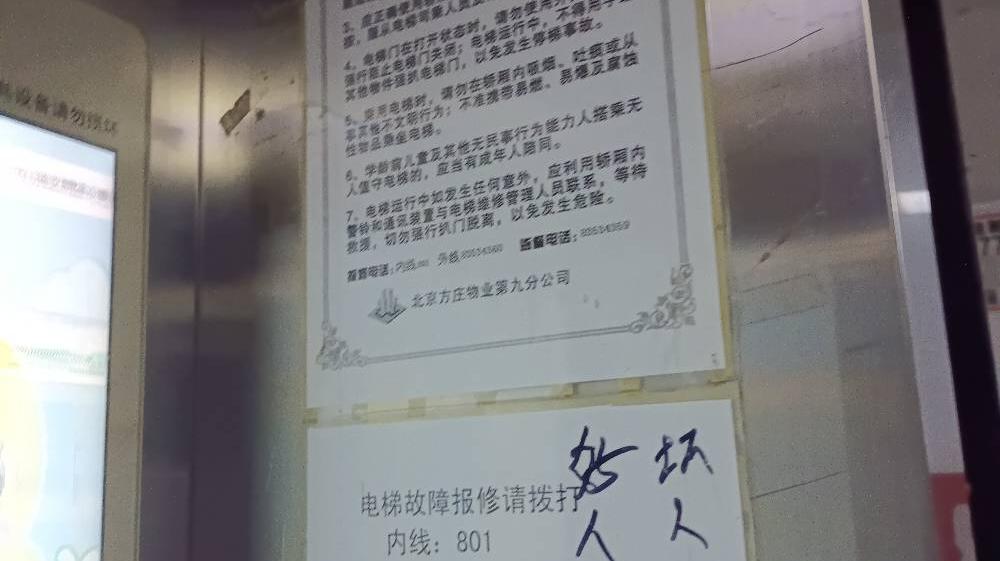 3、应正确使用
按，服从电梯司乘人员
4、电梯门在打开状态时，请勿使用
强行阻止电梯门关闭；电梯运行中，不得用手
其他物件强扒电梯门，以免发生停梯事故。
5、乘用电梯时，请勿在轿厢内吸烟、吐痰或从
事其他不文明行为；不准携带易燃、易爆及腐蚀
性物品乘坐电梯。
6、学龄前儿童及其他无民事行为能力人搭乘无
人值守电梯的，应当有成年人陪同。
7、电梯运行中如发生任何意外，应利用轿厢内
警铃和通讯装置与电梯维修管理人员联系，等待
救援，切勿强行扒门脱离，以免发生危险。
报修电话：内线 外线 监督电话：
北京方庄物业第九分公司
电梯故障报修请拨打
内线：801
坏
人 人
设备请勿